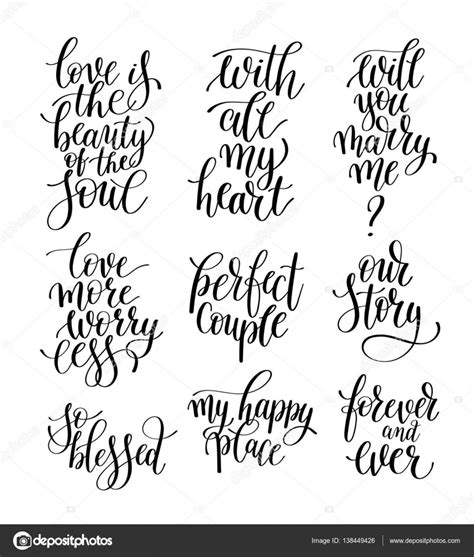 love is
the
beauty
of the
soul
with
all
my
heart
will
you
marry
me
?
love
more
worry
less
perfect
couple
our
story
so
blessed
my happy
place
forever
and
ever
depositphotos
Image ID: 138449426
www.depositphotos.com